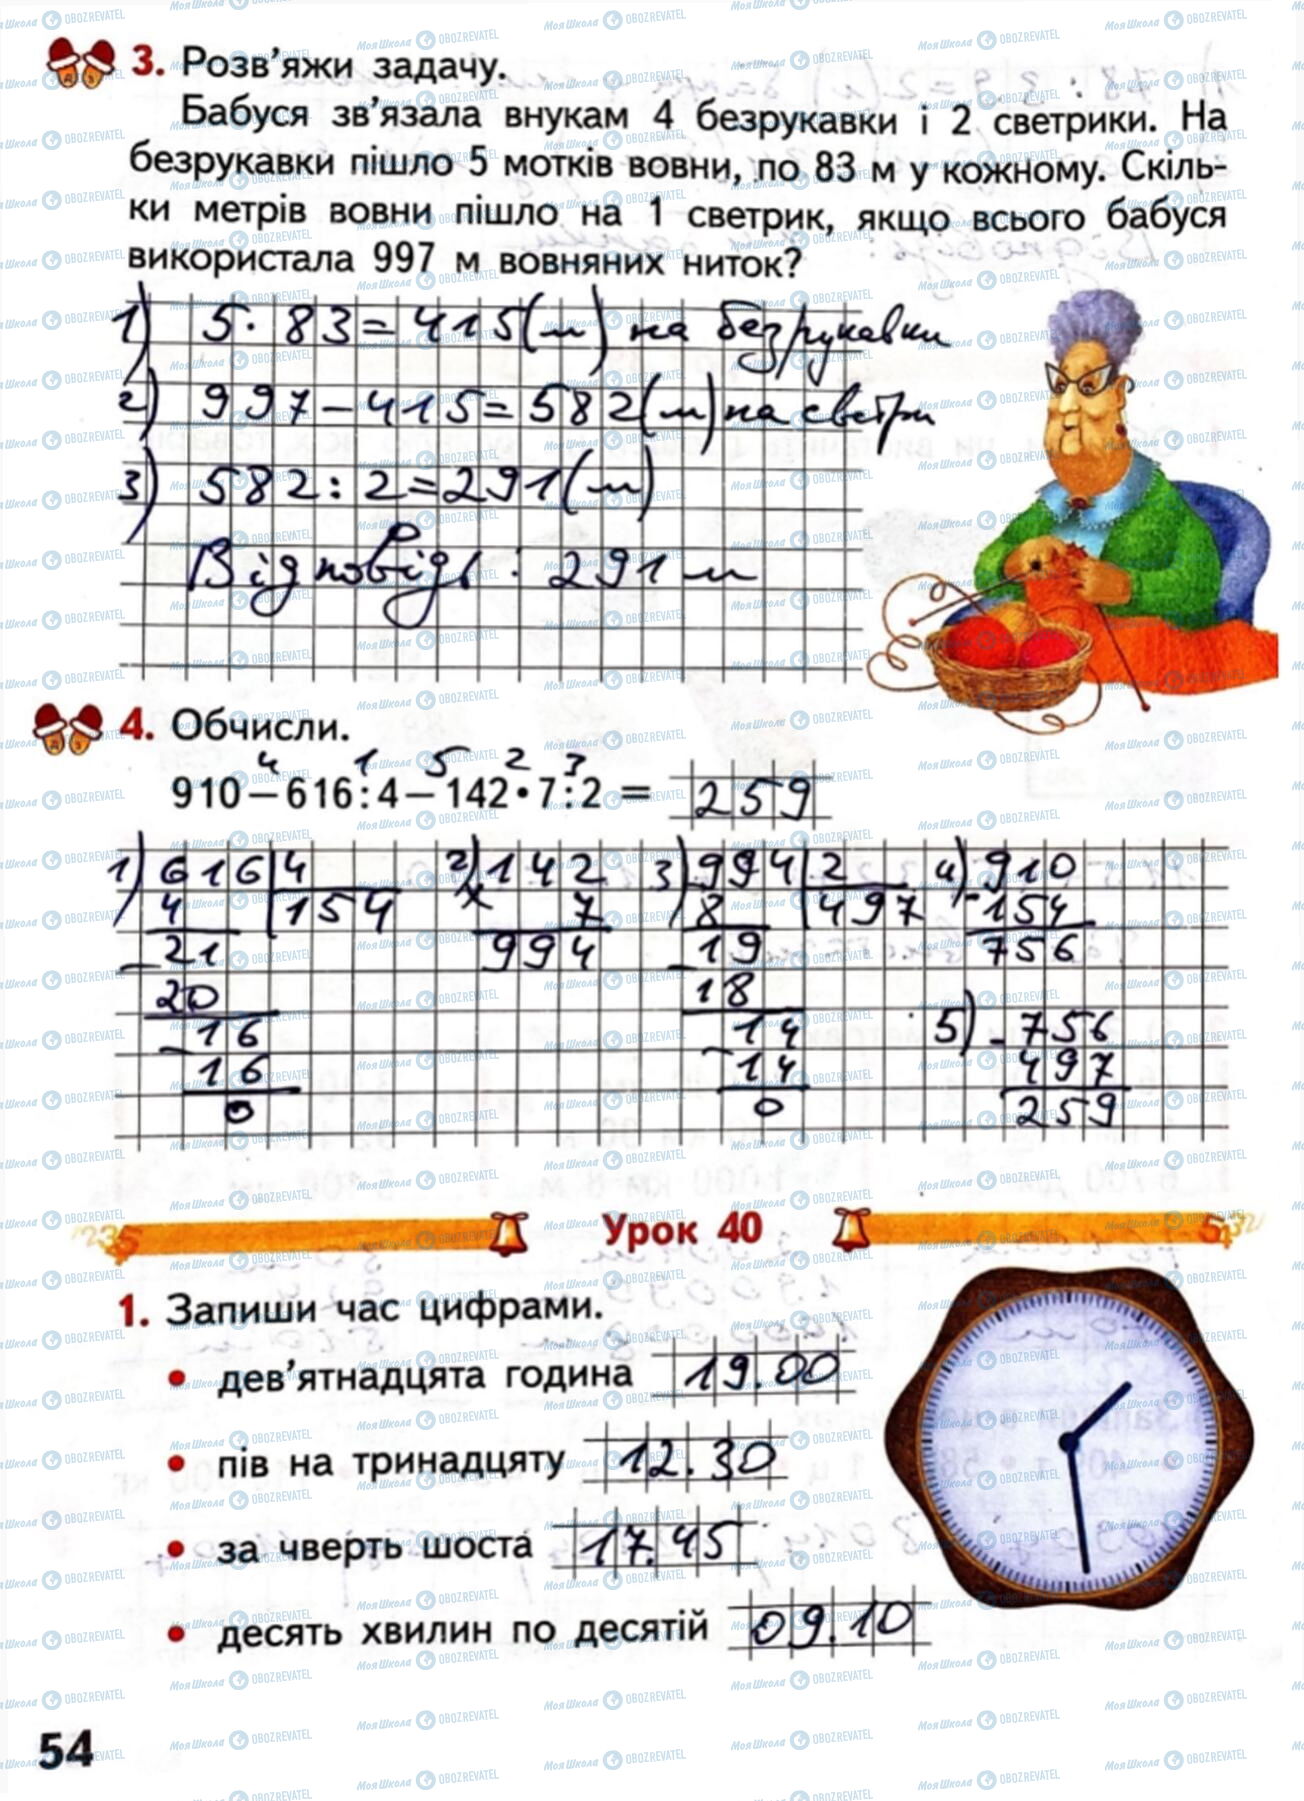 3. Розв’яжи задачу.
Бабуся зв’язала внукам 4 безрукавки і 2 светрики. На
безрукавки пішло 5 мотків вовни, по 83 м у кожному. Скіль-
ки метрів вовни пішло на 1 светрик, якщо всього бабуся
використала 997 м вовняних ниток?
1) 5 · 83 = 415 (м) на безрукавки
2) 997 – 415 = 582 (м) на светри
3) 582 : 2 = 291 (м)
Відповідь: 291 м
4. Обчисли.
4 1 5 2 3
910 – 616 : 4 – 142 • 7 : 2 = 259
1) 616 4 2) 142 3) 994 2 4) 910
4 154 × 7 8 497 – 154
– 21 994 – 19 756
20 18
– 16 – 14 5) – 756
16 14 497
0 0 259
Урок 40
1. Запиши час цифрами.
• дев’ятнадцята година 19.00
• пів на тринадцяту 12.30
• за чверть шоста 17.45
• десять хвилин по десятій 09.10
54
МояШкола OBOZREVATEL